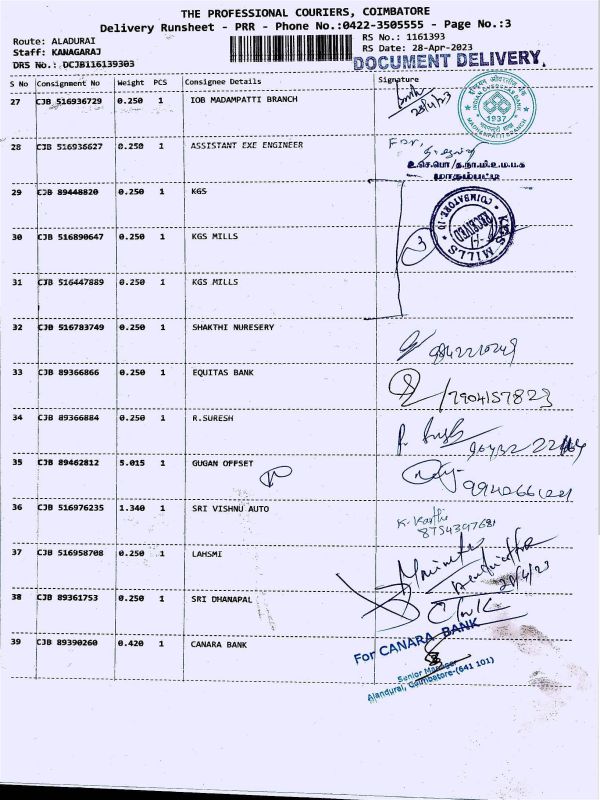 THE PROFESSIONAL COURIERS, COIMBATORE
Delivery Runsheet - PRR - Phone No.:0422-3505555 - Page No.:3
Route: ALADURAI
RS No.: 1161393
Staff: KANAGARAJ
RS Date: 28-Apr-2023
DRS No.: DCJB116139303
DOCUMENT DELIVERY.
S No Consignment No Weight PCS Consignee Details Signature
27 CJB 516936729 0.250 1 IOB MADAMPATTI BRANCH
28/4/23
INDIAN OVERSEAS BANK
1937
28 CJB 516936627 0.250 1 ASSISTANT EXE ENGINEER
For,
உ.செ.பொ/த.நா.மி.உ.ம.ப.க
மாதம்பட்டி
29 CJB 89448820 0.250 1 KGS
KGS MILLS * COIMBATORE-10 *
RECEIVED
30 CJB 516890647 0.250 1 KGS MILLS
31 CJB 516447889 0.250 1 KGS MILLS
32 CJB 516783749 0.250 1 SHAKTHI NURESERY
33 CJB 89366866 0.250 1 EQUITAS BANK
7904157823
34 CJB 89366884 0.250 1 R.SURESH
35 CJB 89462812 5.015 1 GUGAN OFFSET
36 CJB 516976235 1.340 1 SRI VISHNU AUTO
K. Karthi
8754397681
37 CJB 516958708 0.250 1 LAHSMI
38 CJB 89361753 0.250 1 SRI DHANAPAL
39 CJB 89390260 0.420 1 CANARA BANK
For CANARA BANK
Senior Manager
Alandurai, Coimbatore-(641 101)